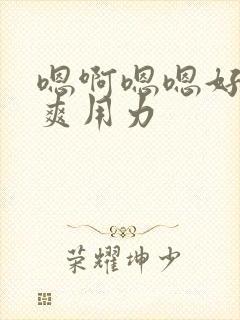 嗯啊嗯嗯好
爽用力
荣耀坤少